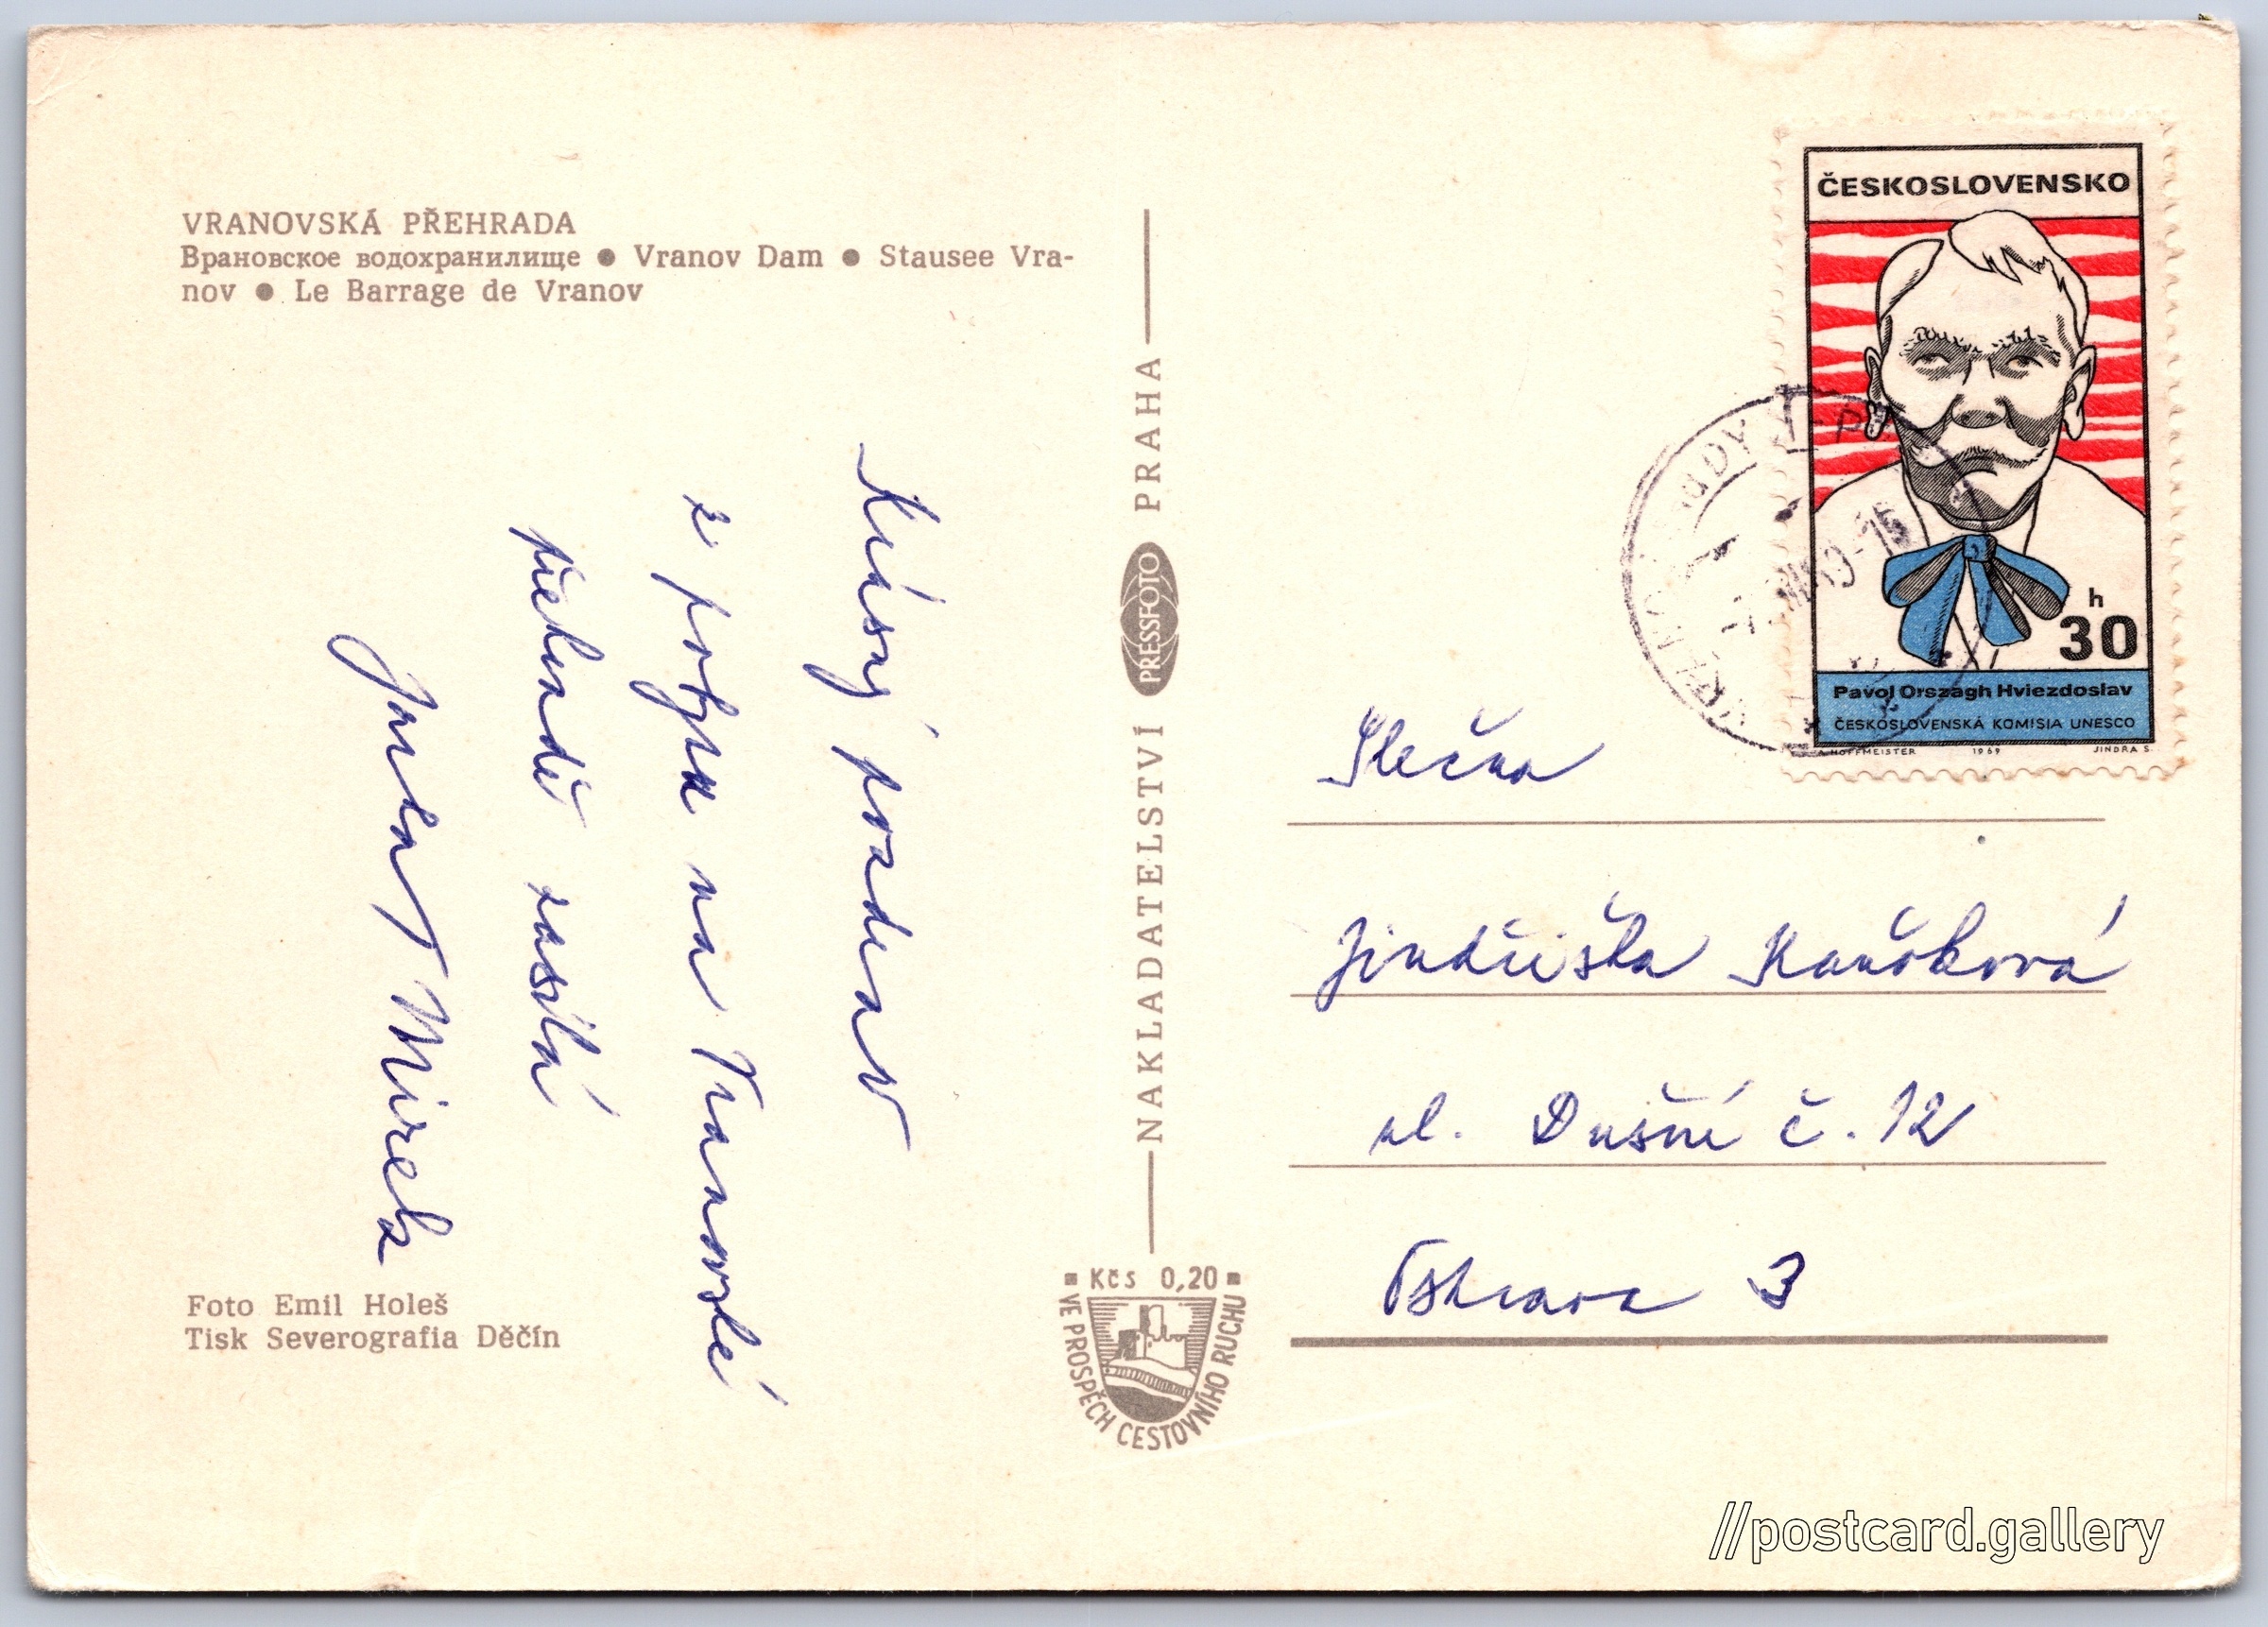 VRANOVSKÁ PŘEHRADA
Врановское водохранилище ● Vranov Dam ● Stausee Vra-
nov ● Le Barrage de Vranov
Krásný pozdrav
z pobytu na Vranovské
přehradě zasílá
Mirek
Foto Emil Holeš
Tisk Severografia Děčín
NAKLADATELSTVÍ PRESSFOTO PRAHA
Kčs 0,20
VE PROSPĚCH CESTOVNÍHO RUCHU
ČESKOSLOVENSKO
h
30
Pavol Országh Hviezdoslav
ČESKOSLOVENSKÁ KOMISIA UNESCO
A. HOFFMEISTER 1969 JINDRA S.
Slečna
Jindřiška Kančková
ul. Dušní č. 12
Ostrava 3
//postcard.gallery